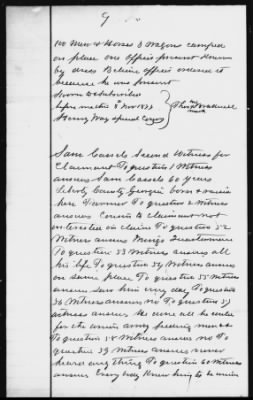 9
100 Men & Horses 3 Wagons camped
on place one Officer present Known
by dress Believe officer ordered it
because he was present
Sworn & Subscribed
before me this 8 Nov 1873
Henry Way Special Comr
his
mark
Sam Cassels Second Witness for
Claimant To question 1 Witness
answers Sam Cassels 60 years
Liberty County Georgia born & raised
here Farmer To question 2 Witness
answers Cousin to claimant not
interested in claim To question 32
Witness answers
To question 33 Witness answers all
his life To question 34 Witness answers
on same place To question 35 Witness
answers Saw him every day To question
36 Witness answers no To question 37
witness answers He done all he could
for the union army feeding men &c
To question 38 Witness answers no To
question 39 Witness answers never
heard any thing To question 40 Witness
answers Every body Knew him to be union